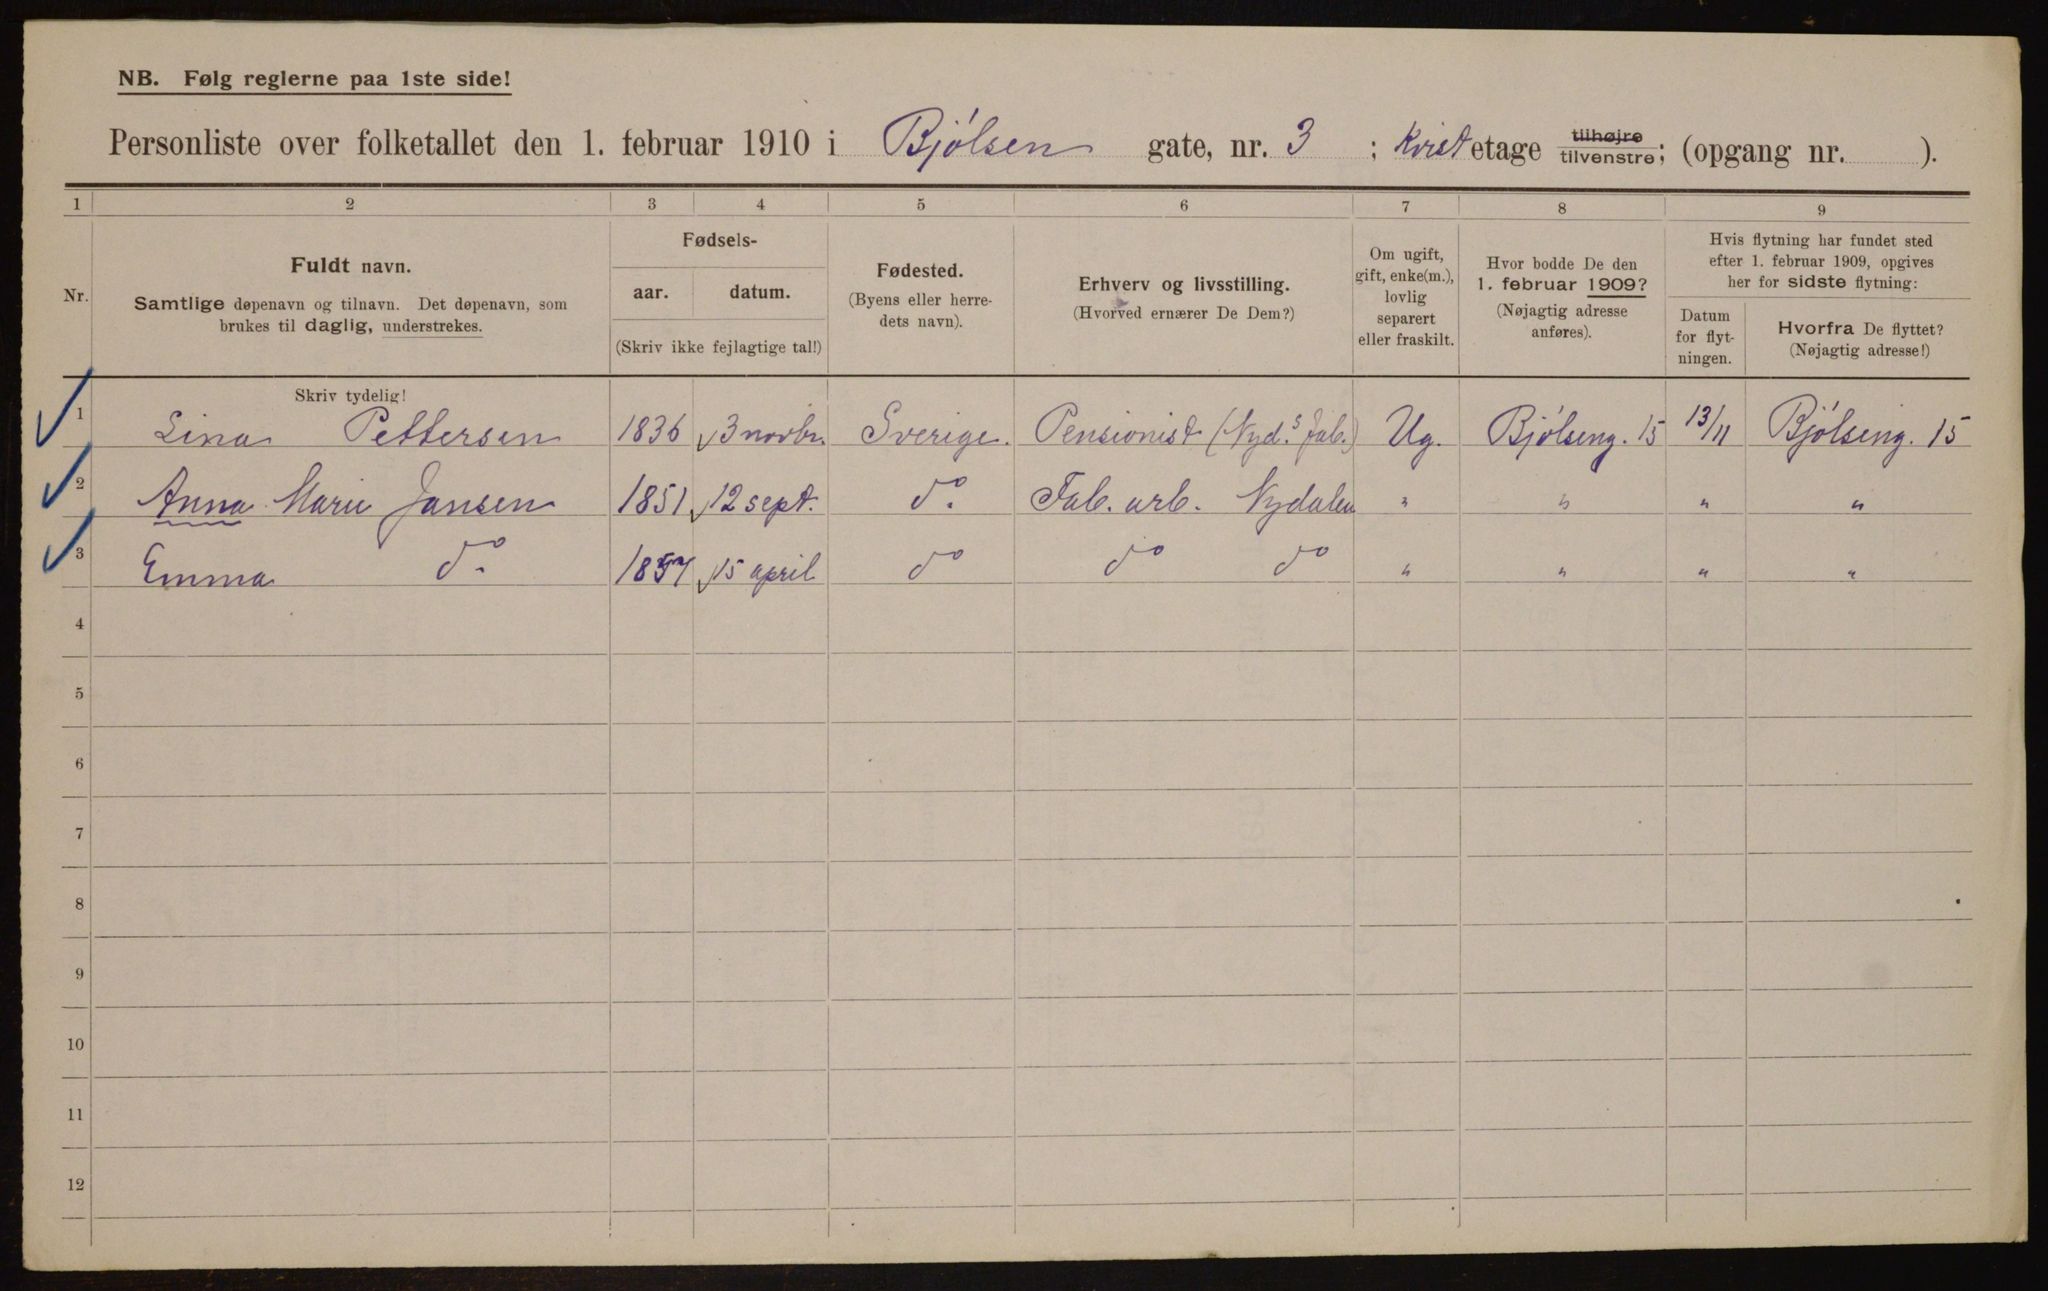 NB. Følg reglerne paa 1ste side!
Personliste over folketallet den 1. februar 1910 i Bjølsen gate, nr. 3 ; Kvist etage tilhøjre tilvenstre; (opgang nr. ).
1 2 3 4 5 6 7 8 9
Nr.
Fuldt navn.
Samtlige døpenavn og tilnavn. Det døpenavn, som
brukes til daglig, understrekes.
Fødsels-
aar. datum.
(Skriv ikke fejlagtige tal!)
Fødested.
(Byens eller herre-
dets navn).
Erhverv og livsstilling.
(Hvorved ernærer De Dem?)
Om ugift,
gift, enke(m.),
lovlig
separert
eller fraskilt.
Hvor bodde De den
1. februar 1909?
(Nøjagtig adresse
anføres).
Hvis flytning har fundet sted
efter 1. februar 1909, opgives
her for sidste flytning:
Datum
for flyt-
ningen.
Hvorfra De flyttet?
(Nøjagtig adresse!)
Skriv tydelig!
1 Lina Pettersen 1836 3 novbr. Sverige. Pensionist (Nyd.s Fab.) Ug. Bjølseng. 15 13/11 Bjølseng. 15
2 Anna Marie Jansen 1851 12 sept. do. Fab. arb. Nydalen " " " "
3 Emma do. 1857 15 april do do do " " " "
4
5
6
7
8
9
10
11
12